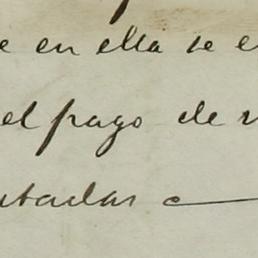 e en ella se e
el pago de
utadas